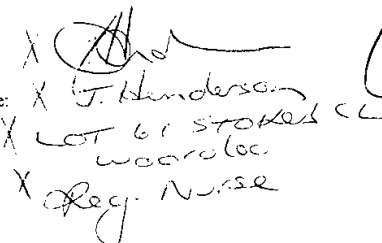 X
e: X J. Henderson
X LOT 61 STOKES CL
Woorolloo
X Reg. Nurse